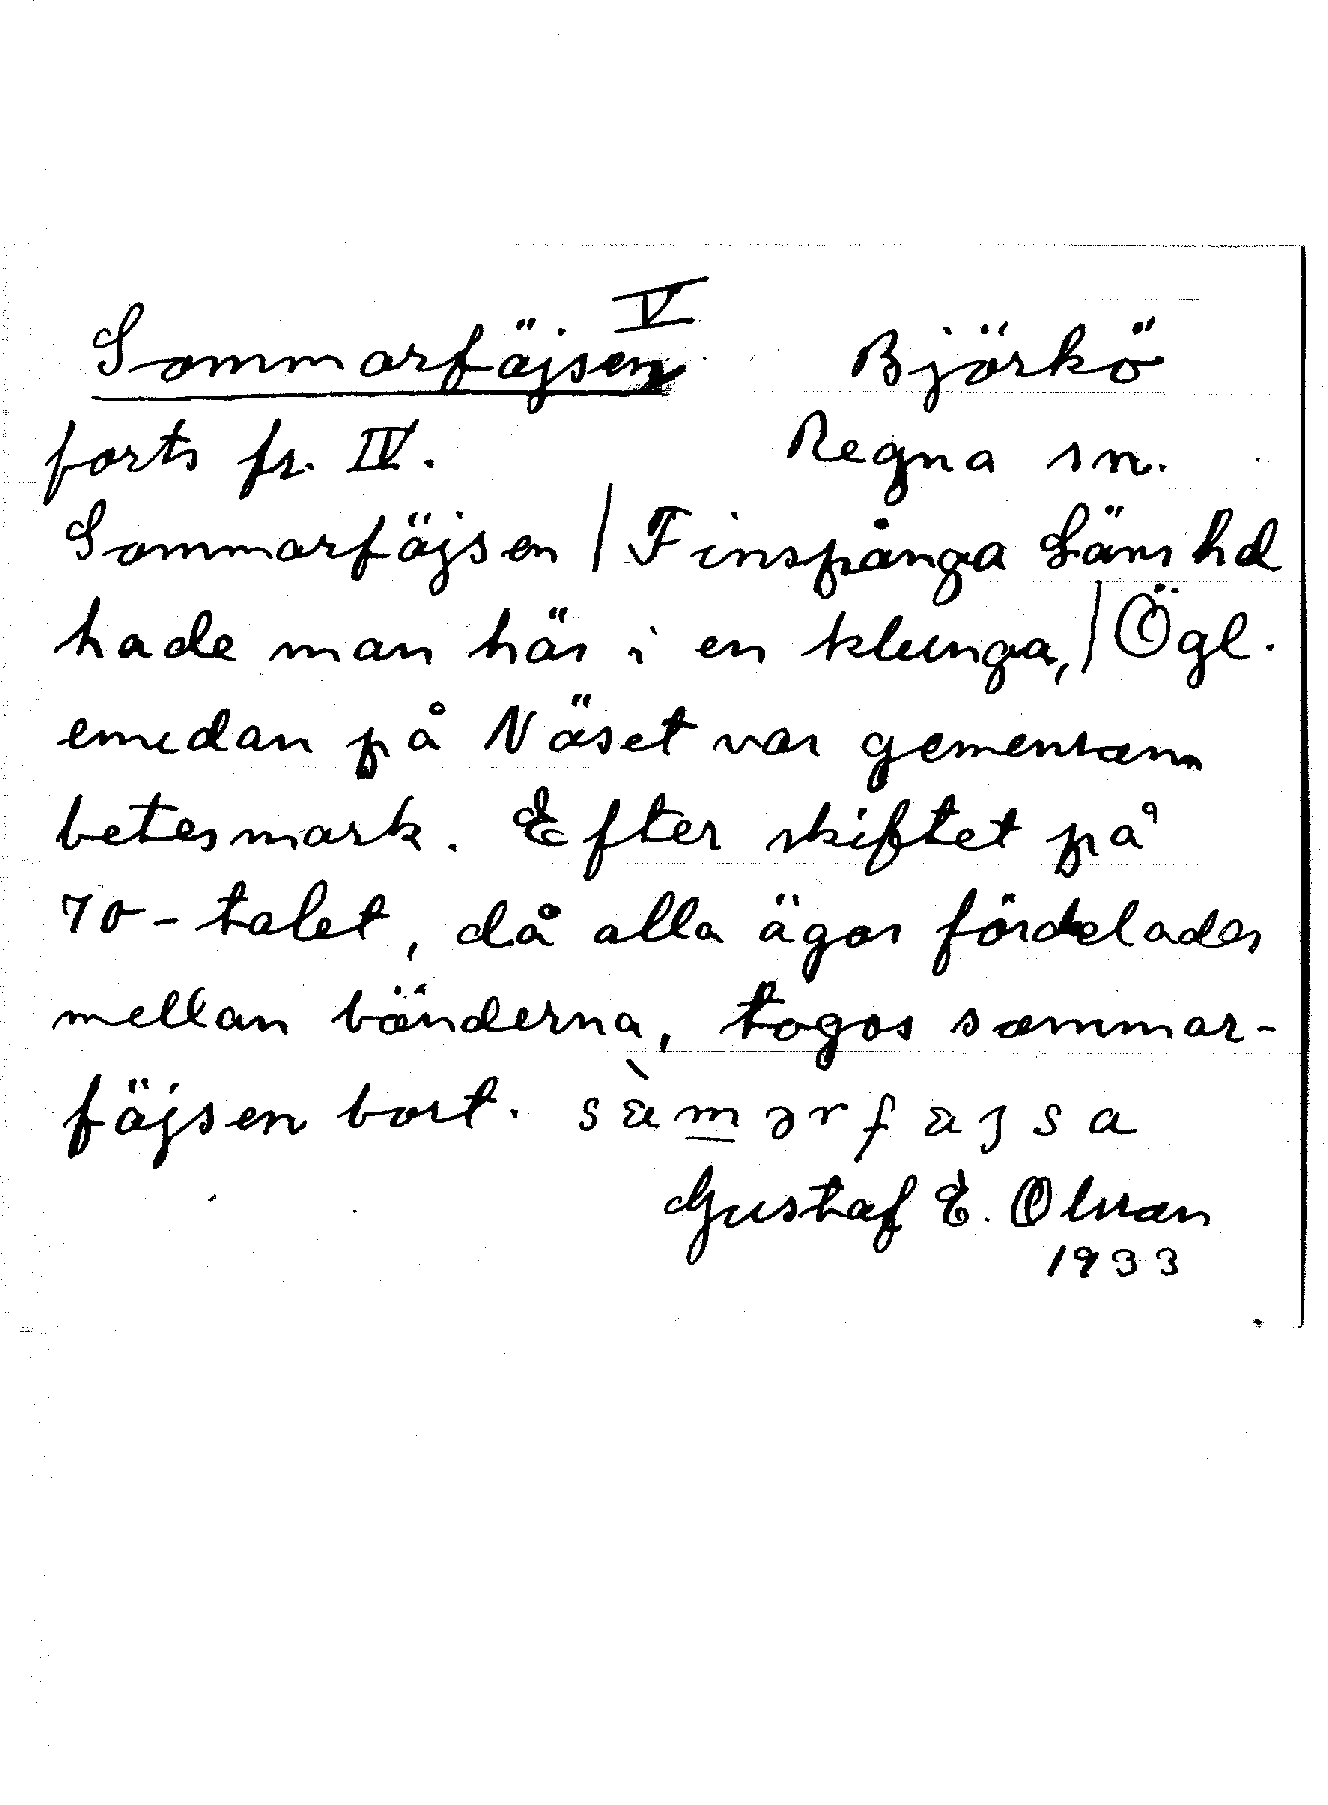 V
Sommarfäjsen Björkö
forts fr. IV. Regna sn.
Sommarfäjsen / Finspånga Läns hd
hade man här i en klunga, / Ögl.
emedan på Näset var gemensam
betesmark. Efter skiftet på
70-talet, då alla ägor fördelades
mellan bönderna, togos sommar-
fäjsen bort.
Gustaf E. Olsson
1933